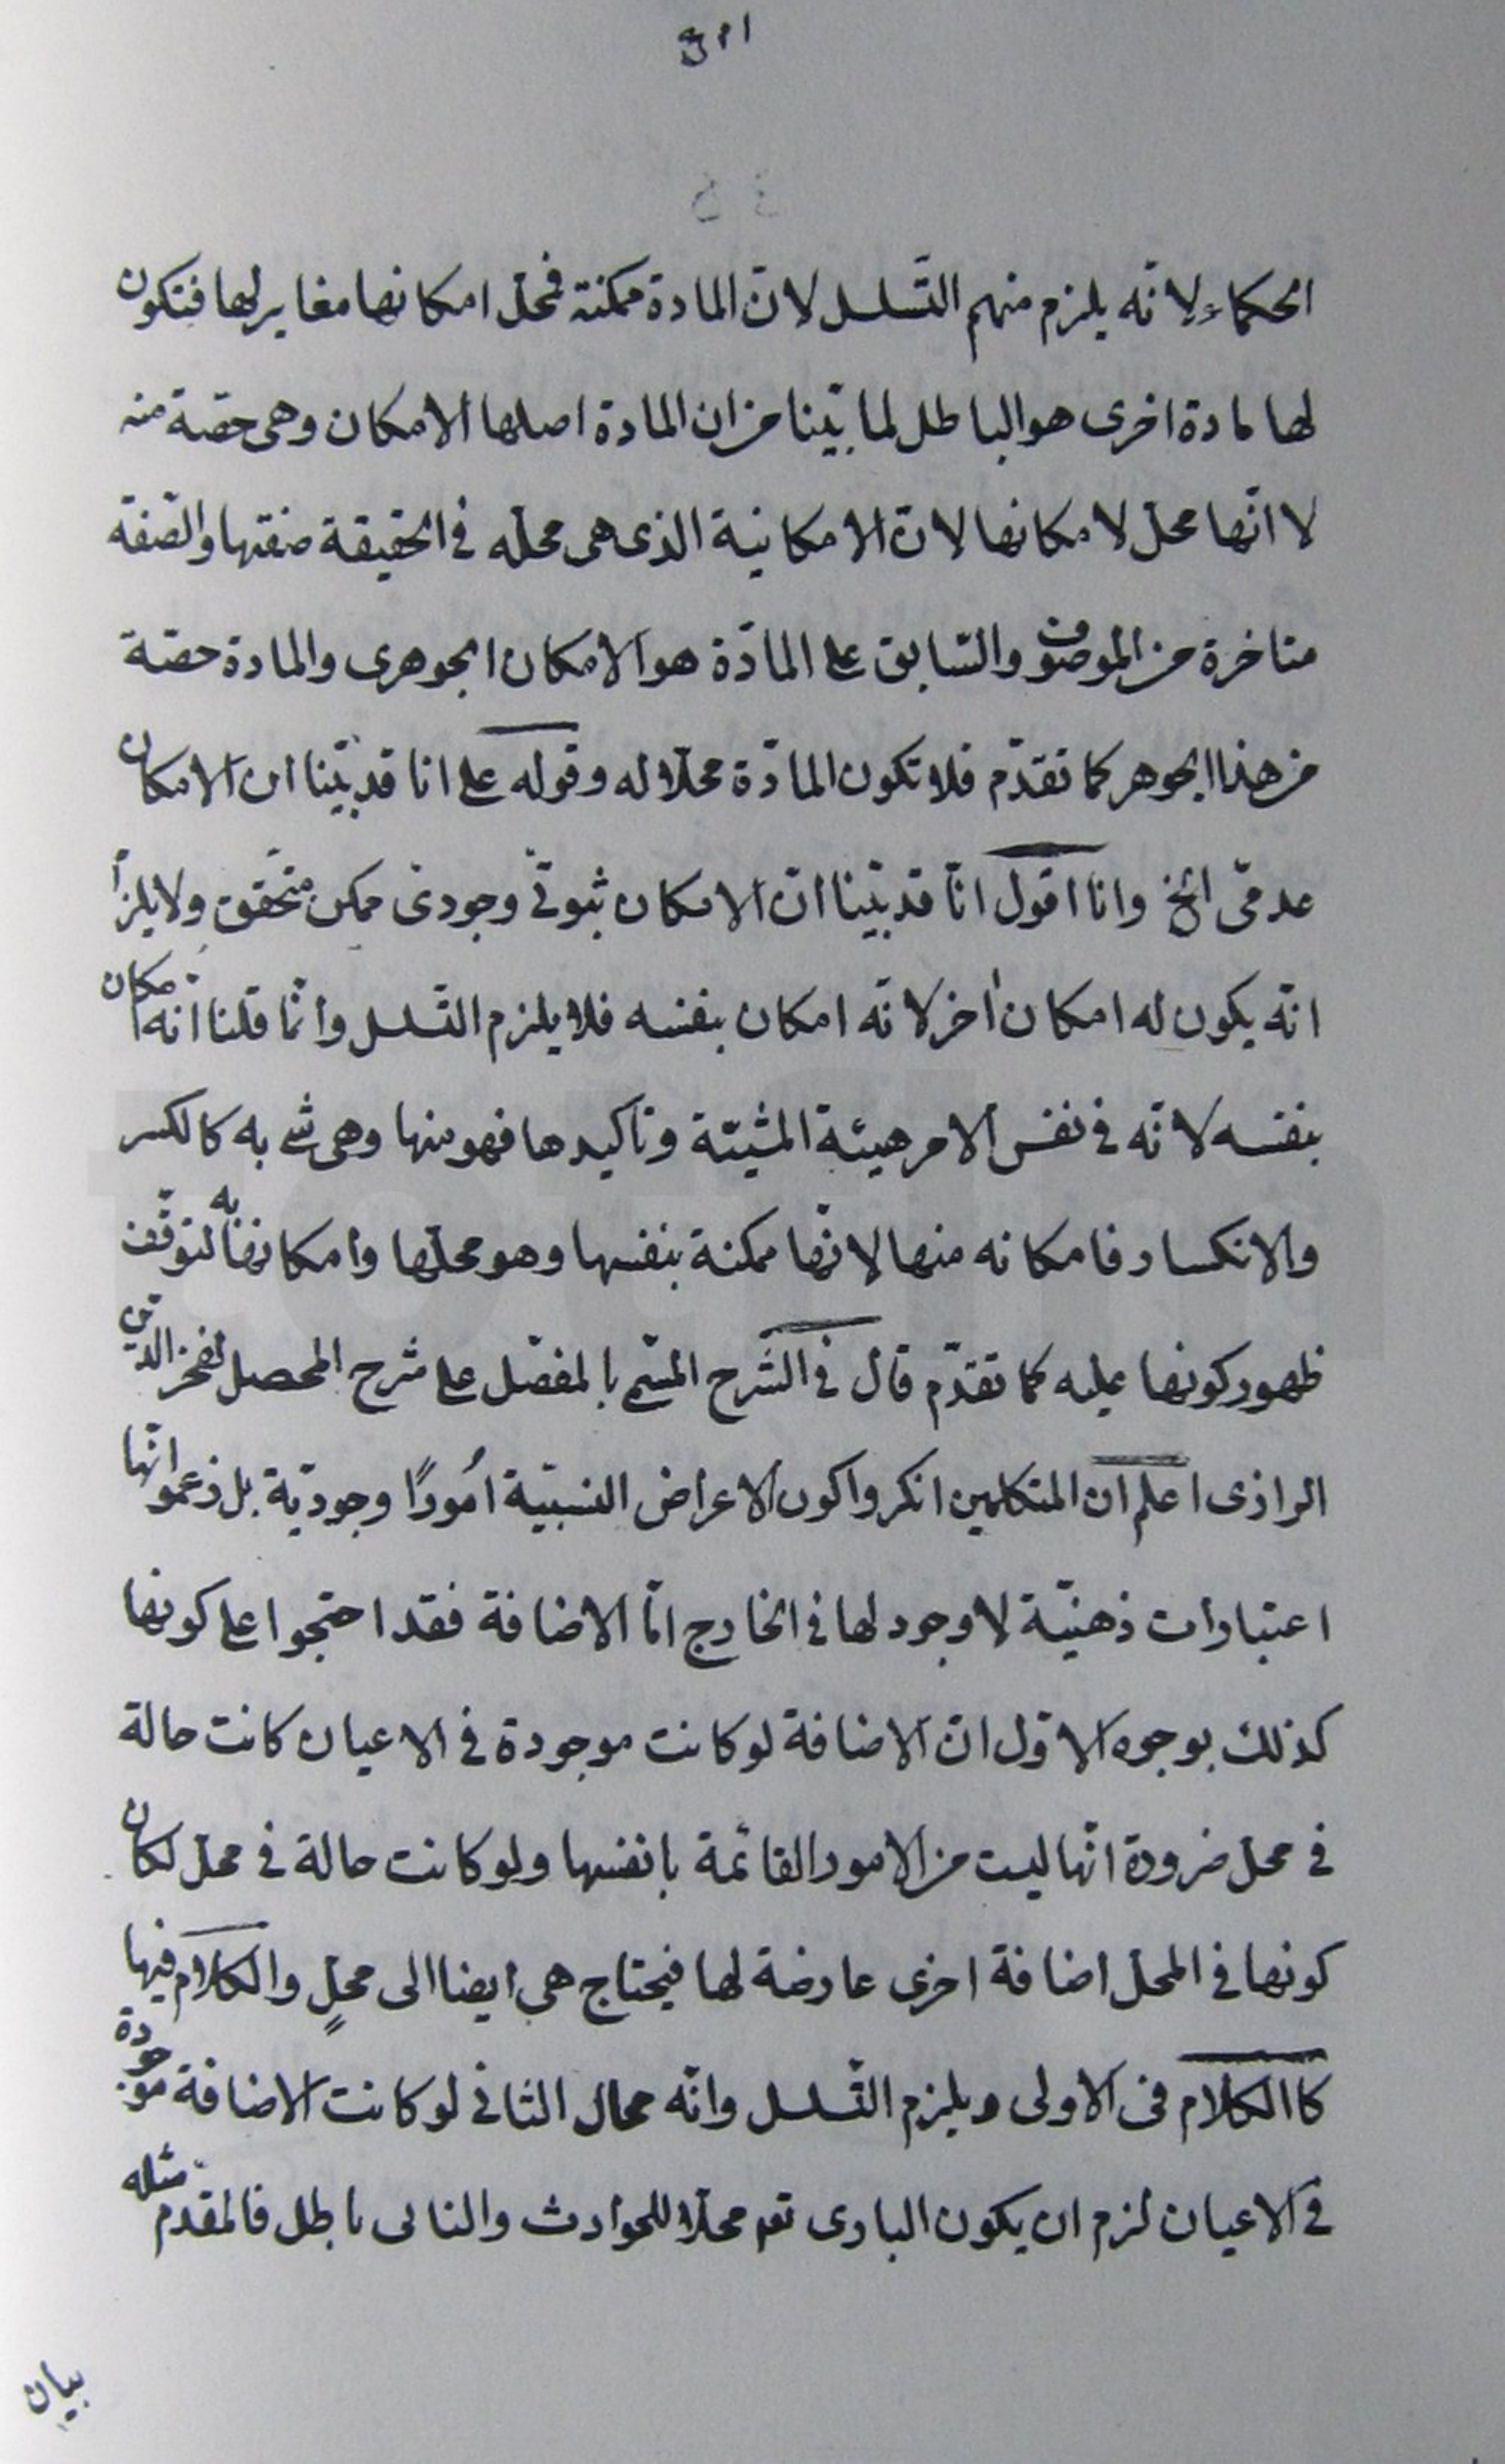 الحكماء لانّه يلزم منهم التّسلسل لانّ المادة ممكنة فمحلّ امكانها مغاير لها فتكون
لها مادة اخرى هو الباطل لما بيّنا من ان المادة اصلها الامكان وهى حصّة منه
لا انّها محلّ لامكانها لانّ الامكانية الذى هى محلّه فى الحقيقة صفتها والصّفة
متاخرة من الموصوف والسّابق على المادّة هو الامكان الجوهرى والمادة حصّة
من هذا الجوهر كما تقدّم فلا تكون المادّة محلّا له وقوله على انا قد بيّنا ان الامكان
عدمىّ الخ وانا اقول انّا قد بيّنا انّ الامكان ثبوتىّ وجودىّ ممكن متحقّق ولا يلزم
انّه يكون له امكان اخر لانّه امكان بنفسه فلا يلزم التّسلسل وانّما قلنا انّه امكان
بنفسه لانّه فى نفس الامر هيئة المشيّة وتاكيدها فهو منها وهى شئ به كالكسر
والانكسار فامكانه منها لانّها ممكنة بنفسها وهو محلّها وامكانها به لتوقّف
ظهور كونها عليه كما تقدّم قال فى الشّرح المسّمى بالمفصّل على شرح المحصل لفخر الدّين
الرازى اعلم ان المتكلمين انكروا كون الاعراض النسبيّة أمورًا وجوديّة بل زعموا انّها
اعتبارات ذهنيّة لا وجود لها فى الخارج امّا الاضافة فقد احتجوا على كونها
كذلك بوجوه الاوّل انّ الاضافة لو كانت موجودة فى الاعيان كانت حالة
فى محلّ ضرورة انّها ليست من الامور القائمة بانفسها ولو كانت حالة فى محلّ لكان
كونها فى المحلّ اضافة اخرى عارضة لها فيحتاج هى ايضا الى محلٍّ والكلام فيها
كالكلام فى الاولى ويلزم التّسلسل وانّه محال الثانى لو كانت الاضافة موجودة
فى الاعيان لزم ان يكون البارى تعه محلّا للحوادث والتالى باطل فالمقدّم مثله
بيان